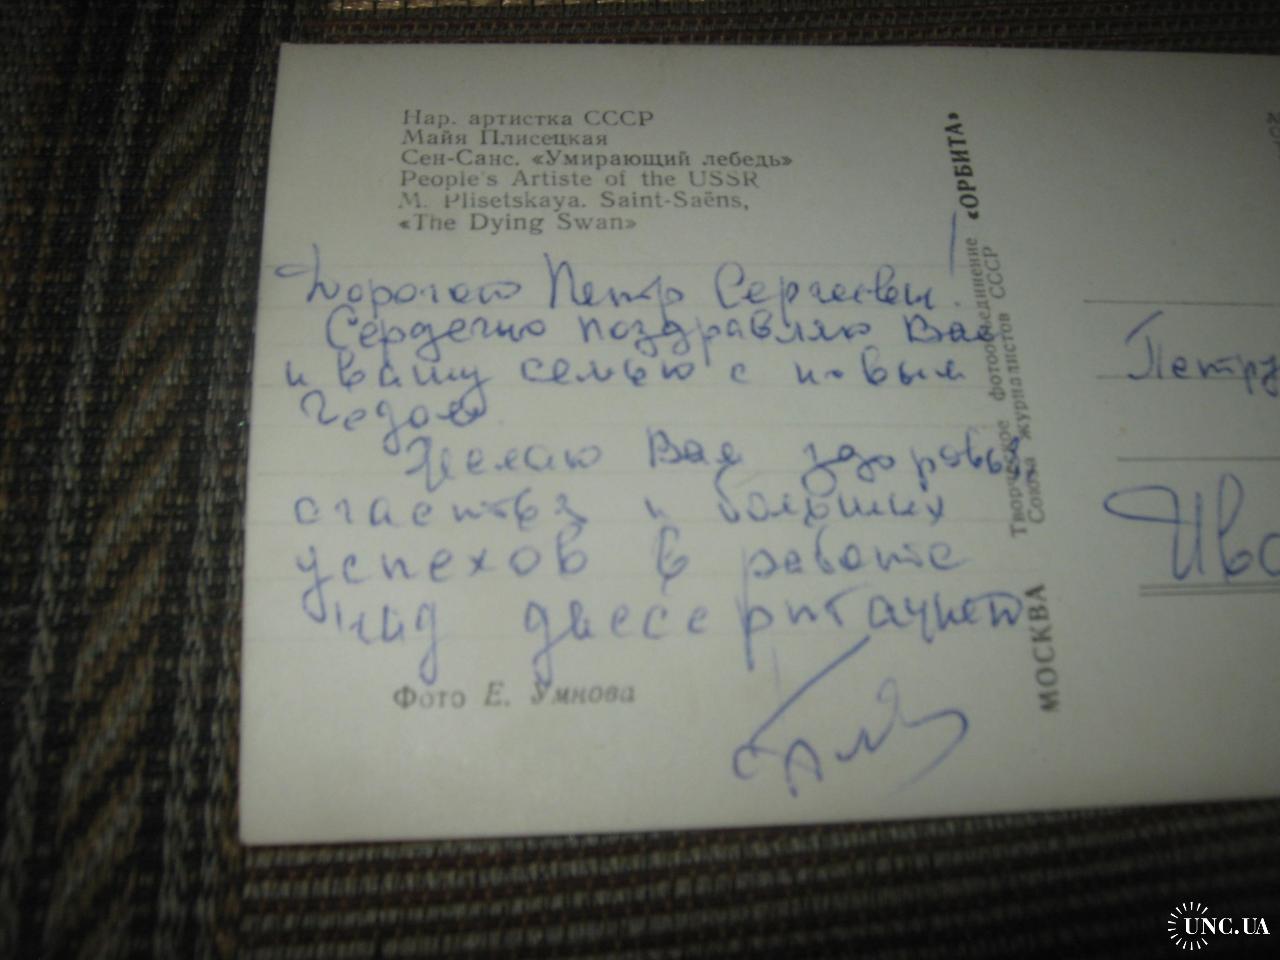 Нар. артистка СССР
Майя Плисецкая
Сен-Санс. «Умирающий лебедь»
People's Artiste of the USSR
M. Plisetskaya. Saint-Saëns,
«The Dying Swan»
Дорогой Петр Сергеевич!
Сердечно поздравляю Вас
и вашу семью с новым
Годом
Желаю Вам здоровья
счастья и больших
успехов в работе
над диссертацией
Фото Е. Умнова
МОСКВА
Творческое фотообъединение «ОРБИТА»
Союза журналистов СССР
Петру
UNC.UA